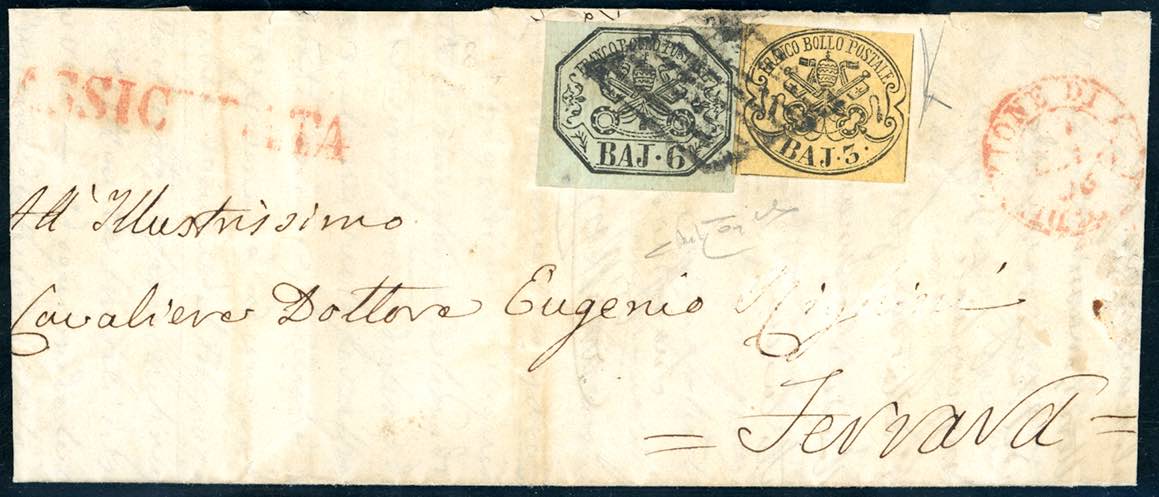 ASSICURATA
FRANCO BOLLO POSTALE
BAJ·6·
FRANCO BOLLO POSTALE
BAJ·3·
IONE DI
All' Illustrissimo
Cavaliere Dottore Eugenio
= Ferrara =